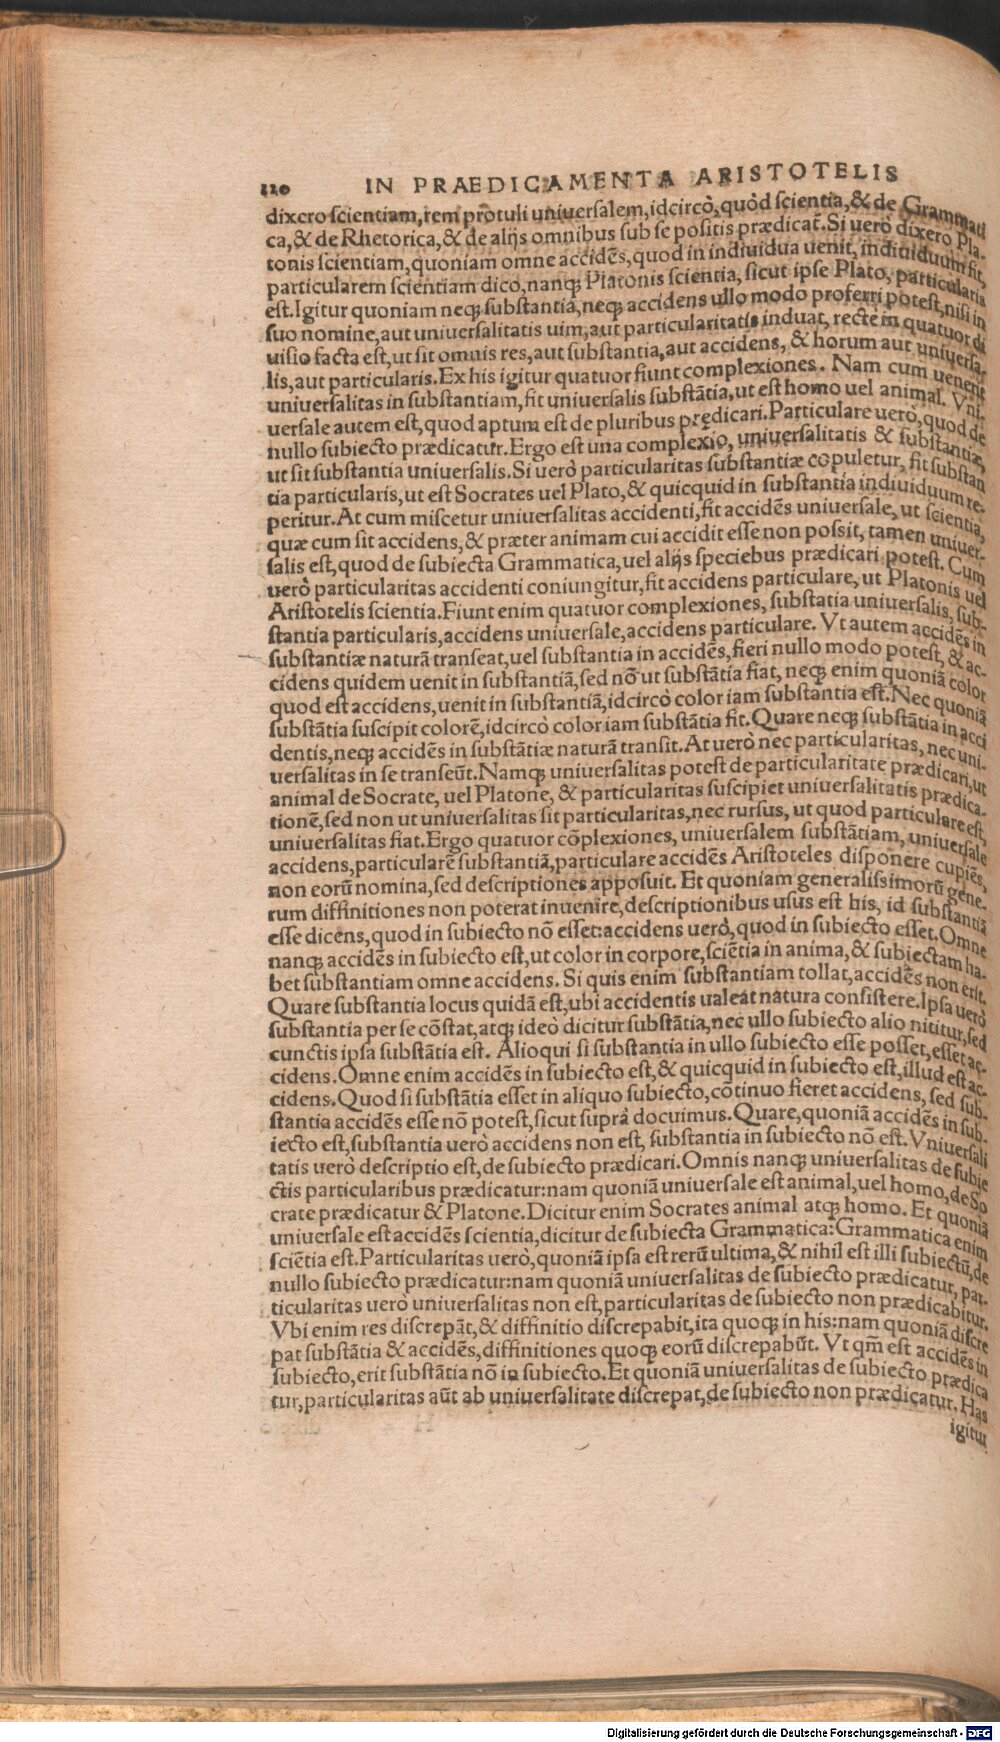 120 IN PRAEDICAMENTA ARISTOTELIS
dixero scientiam, rem protuli uniuersalem, idcircò, quòd scientia, & de Grammati
ca, & de Rhetorica, & de alijs omnibus sub se positis prædicat̃. Si uerò dixero Pla-
tonis scientiam, quoniam omne accidẽs, quod in indiuidua uenit, indiuiduum fit,
particularem scientiam dico, nanq; Platonis scientia, sicut ipse Plato, particularis
est. Igitur quoniam neq; substantia, neq; accidens ullo modo proferri potest, nisi in
suo nomine, aut uniuersalitatis uim, aut particularitatis induat, rectè in quatuor di
uisio facta est, ut sit omnis res, aut substantia, aut accidens, & horum aut uniuersa-
lis, aut particularis. Ex his igitur quatuor fiunt complexiones. Nam cum uenerit
uniuersalitas in substantiam, fit uniuersalis substãtia, ut est homo uel animal. Vni-
uersale autem est, quod aptum est de pluribus prędicari. Particulare uerò, quod de
nullo subiecto prædicatur. Ergo est una complexio, uniuersalitatis & substantiæ,
ut sit substantia uniuersalis. Si uerò particularitas substantiæ copuletur, fit substan
tia particularis, ut est Socrates uel Plato, & quicquid in substantia indiuiduum re-
peritur. At cum miscetur uniuersalitas accidenti, fit accidẽs uniuersale, ut scientia,
quæ cum sit accidens, & præter animam cui accidit esse non possit, tamen uniuer-
salis est, quod de subiecta Grammatica, uel alijs speciebus prædicari potest. Cum
uerò particularitas accidenti coniungitur, fit accidens particulare, ut Platonis uel
Aristotelis scientia. Fiunt enim quatuor complexiones, substatia uniuersalis, sub-
stantia particularis, accidens uniuersale, accidens particulare. Vt autem accidẽs in
substantiæ naturã transeat, uel substantia in accidẽs, fieri nullo modo potest, & ac-
cidens quidem uenit in substantiã, sed nõ ut substãtia fiat, neq; enim quoniã color
quod est accidens, uenit in substantiã, idcircò color iam substantia est. Nec quoniã
substãtia suscipit colorẽ, idcircò color iam substãtia fit. Quare neq; substãtia in acci
dentis, neq; accidẽs in substãtiæ naturã transit. At uerò nec particularitas, nec uni-
uersalitas in se transeũt. Namq; uniuersalitas potest de particularitate prædicari, ut
animal de Socrate, uel Platone, & particularitas suscipiet uniuersalitatis prædica-
tionẽ, sed non ut uniuersalitas sit particularitas, nec rursus, ut quod particulare est,
uniuersalitas fiat. Ergo quatuor cõplexiones, uniuersalem substãtiam, uniuersale
accidens, particularẽ substantiã, particulare accidẽs Aristoteles disponere cupiẽs,
non eorũ nomina, sed descriptiones apposuit. Et quoniam generalissimorũ gene-
rum diffinitiones non poterat inuenire, descriptionibus usus est his, id substantiã
esse dicens, quod in subiecto nõ esset: accidens uerò, quod in subiecto esset. Omne
nanq; accidẽs in subiecto est, ut color in corpore, sciẽtia in anima, & subiectam ha-
bet substantiam omne accidens. Si quis enim substantiam tollat, accidẽs non erit.
Quare substantia locus quidã est, ubi accidentis ualeat natura consistere. Ipsa uerò
substantia per se cõstat, atq; ideò dicitur substãtia, nec ullo subiecto alio nititur, sed
cunctis ipsa substãtia est. Alioqui si substantia in ullo subiecto esse posset, esset ac-
cidens. Omne enim accidẽs in subiecto est, & quicquid in subiecto est, illud est ac-
cidens. Quod si substãtia esset in aliquo subiecto, cõtinuo fieret accidens, sed sub-
stantia accidẽs esse nõ potest, sicut suprà docuimus. Quare, quoniã accidẽs in sub-
iecto est, substantia uerò accidens non est, substantia in subiecto nõ est. Vniuersali
tatis uerò descriptio est, de subiecto prædicari. Omnis nanq; uniuersalitas de subie
ctis particularibus prædicatur: nam quoniã uniuersale est animal, uel homo, de So
crate prædicatur & Platone. Dicitur enim Socrates animal atq; homo. Et quoniã
uniuersale est accidẽs scientia, dicitur de subiecta Grammatica: Grammatica enim
sciẽtia est. Particularitas uerò, quoniã ipsa est rerũ ultima, & nihil est illi subiectũ, de
nullo subiecto prædicatur: nam quoniã uniuersalitas de subiecto prædicatur, par-
ticularitas uerò uniuersalitas non est, particularitas de subiecto non prædicabitur.
Vbi enim res discrepãt, & diffinitio discrepabit, ita quoq; in his: nam quoniã discre
pat substãtia & accidẽs, diffinitiones quoq; eorũ discrepabũt. Vt qm̃ est accidẽs in
subiecto, erit substãtia nõ in subiecto. Et quoniã uniuersalitas de subiecto prædica
tur, particularitas aũt ab uniuersalitate discrepat, de subiecto non prædicatur. Has
igitur
Digitalisierung gefördert durch die Deutsche Forschungsgemeinschaft - DFG